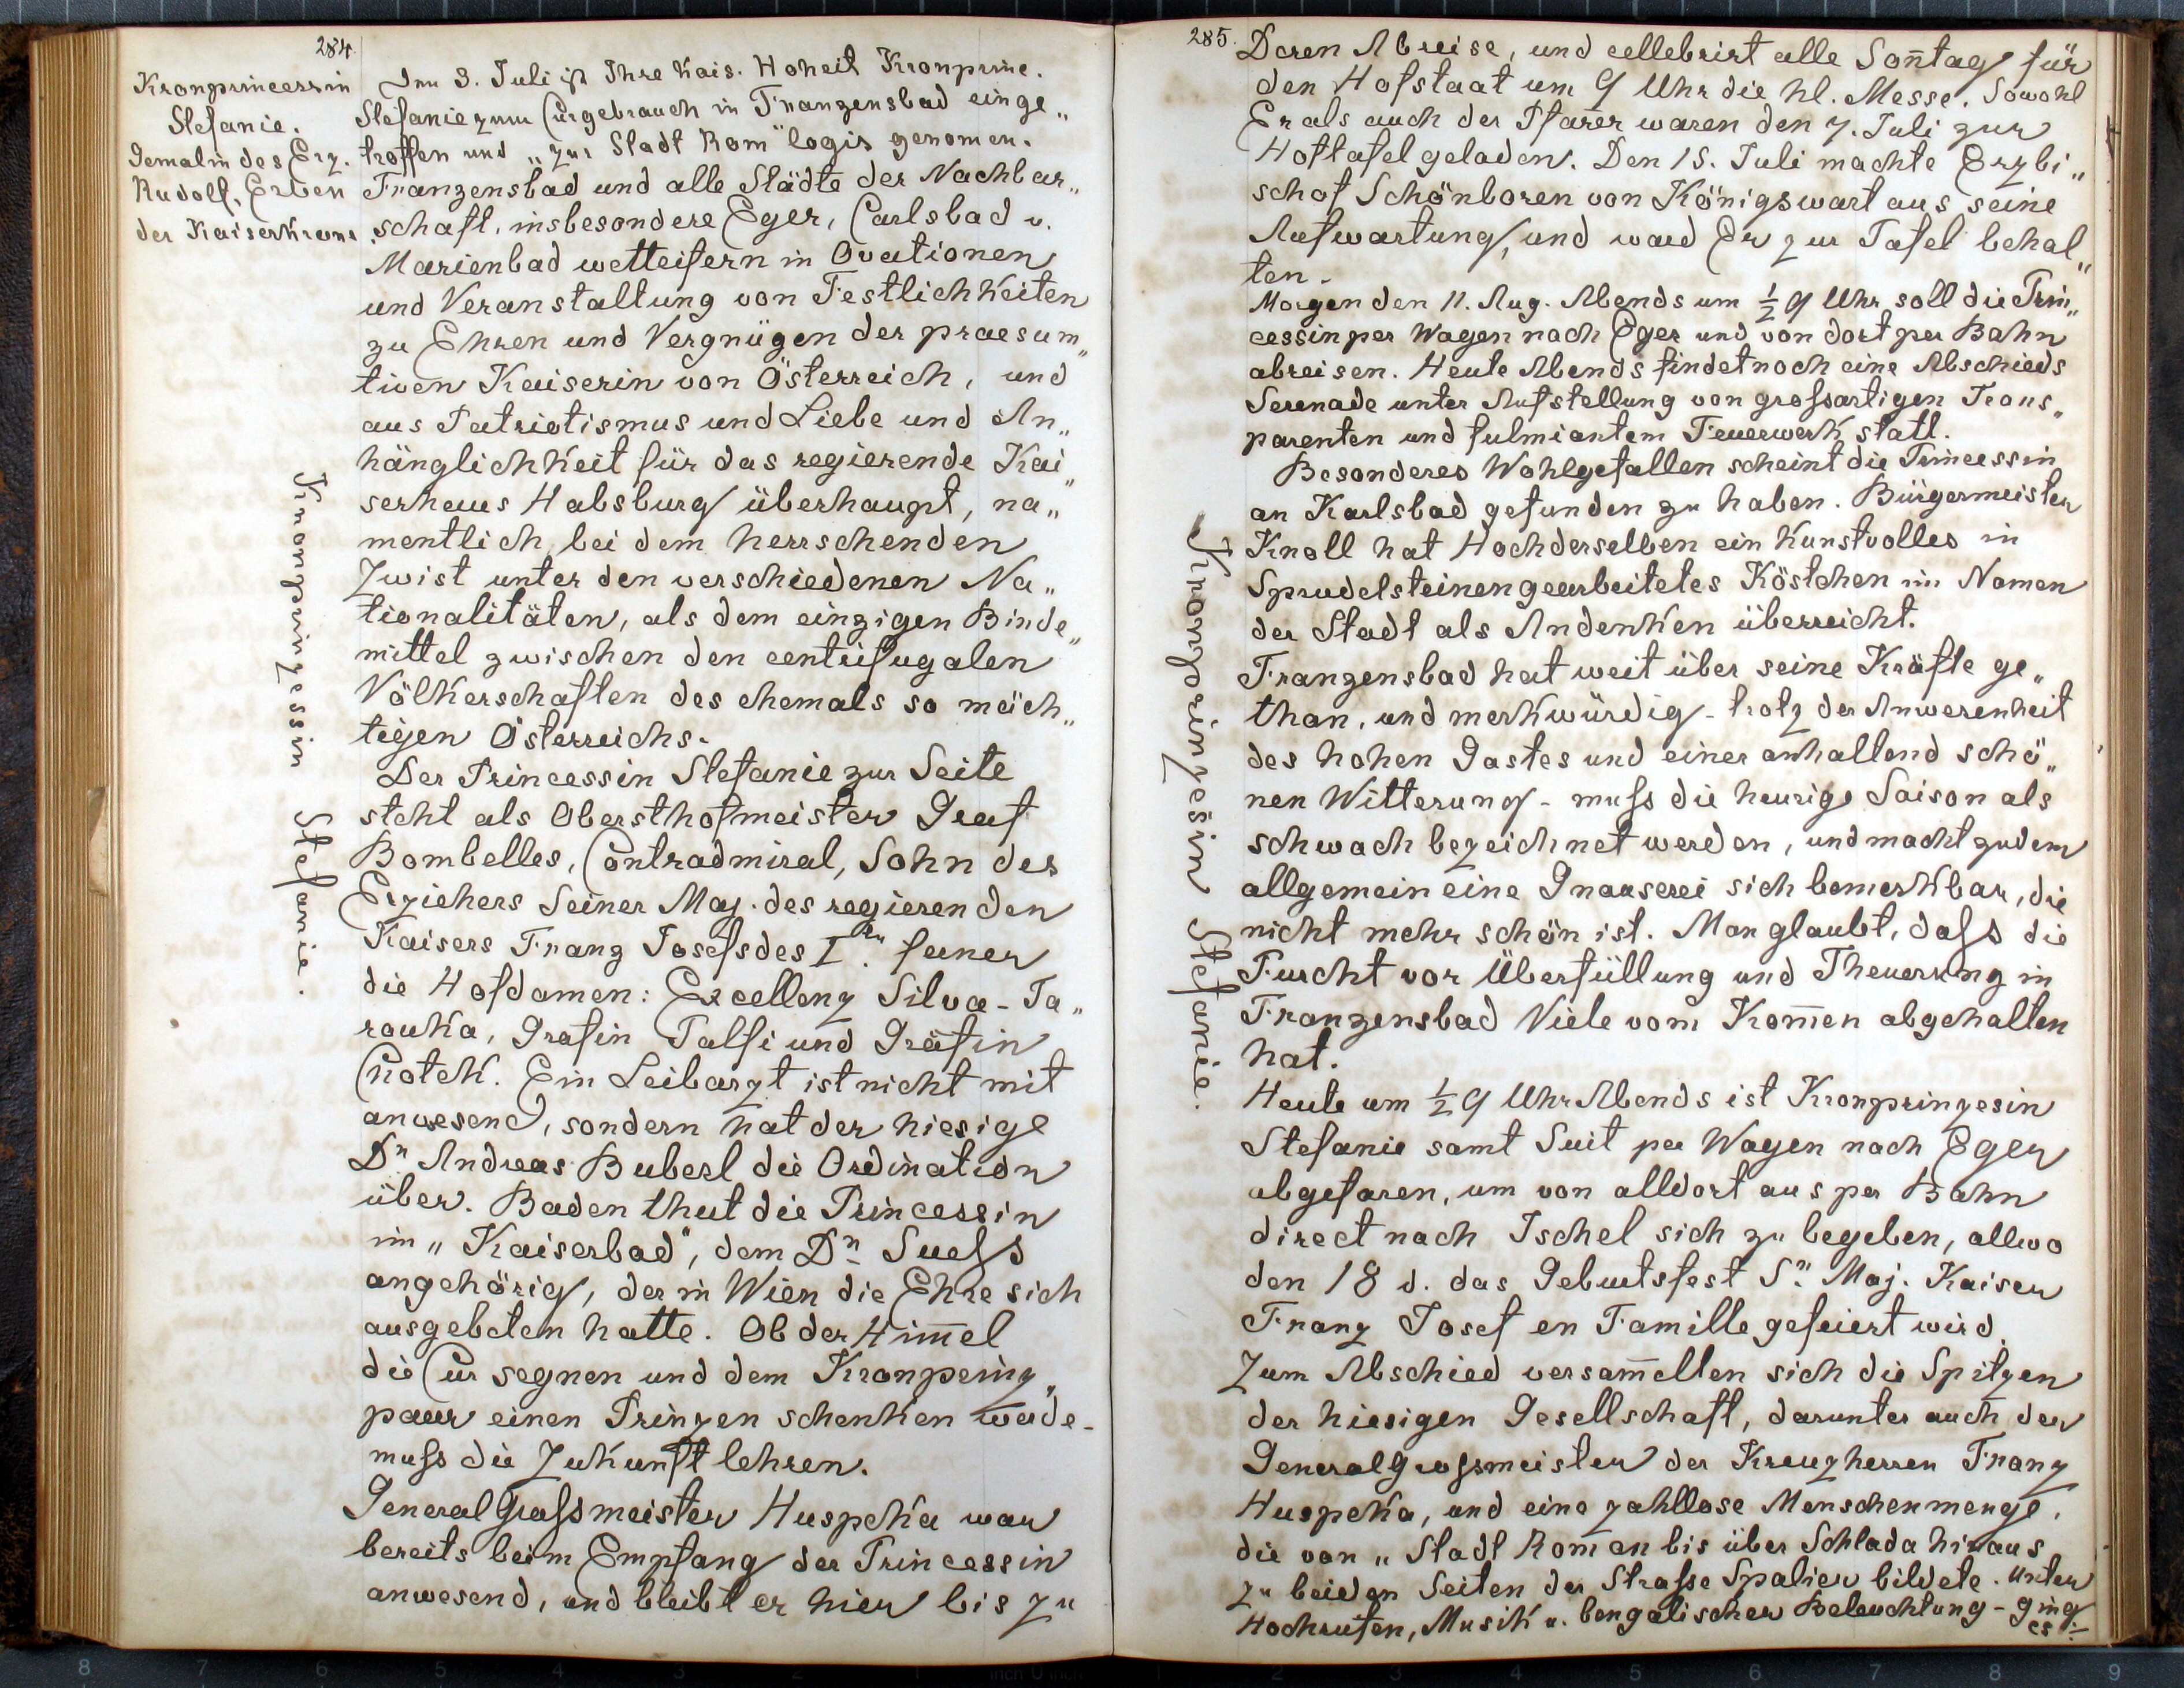 284.
Kronprincessin
Stefanie.
Gemalin des Erz.
Rudolf, Erben
der Kaiserkrone
Kronprinzessin Stefanie.
Am 3. Juli ist Ihre Kais. Hoheit Kronprinc.
Stefanie zum Curgebrauch in Franzensbad einge„
troffen und „zur Stadt Rom" logis genomen.
Franzensbad und alle Städte der Nachbar„
schaft, insbesondere Eger, Carlsbad u.
Marienbad wetteifern in Ovationen
und Veranstaltung von Festlichkeiten
zu Ehren und Vergnügen der praesum„
tiven Kaiserin von Österreich, und
aus Patriotismus und Liebe und An„
hänglichkeit für das regierende Kai„
serhaus Habsburg überhaupt, na„
mentlich bei dem herrschenden
Zwist unter den verschiedenen Na„
tionalitäten, als dem einzigen Binde„
mittel zwischen den centrifugalen
Völkerschaften des ehemals so mäch„
tigen Österreichs.
Der Princessin Stefanie zur Seite
steht als Obersthofmeister Graf
Bombelles, Contradmiral, Sohn des
Erziehers Seiner Maj. des regierenden
Kaisers Franz Josefs des I. ferner
die Hofdamen: Excellenz Silva-Ta„
rouka, Gräfin Palfi und Gräfin
Chotek. Ein Leibarzt ist nicht mit
anwesend, sondern hat der hiesige
Dr Andreas Buberl die Ordination
über. Baden thut die Princessin
im „Kaiserbad", dem Dr Suess
angehörig, der in Wien die Ehre sich
ausgebeten hatte. Ob der Him̄el
die Cur segnen und dem Kronprinz„
paar einen Prinzen schenken werde-
muss die Zukunft lehren.
General Grossmeister Huspeka war
bereits beim Empfang der Princessin
anwesend, und bleibt er hier bis zu
285.
Kronprinzes̄in Stefanie.
Deren Abreise, und cellebrirt alle Son̄tag für
den Hofstaat um 9 Uhr die hl. Messe. Sowohl
Er als auch der Pfarer waren den 7. Juli zur
Hoftafel geladen. Den 15. Juli machte Erzbi„
schof Schönboren von Königswart aus seine
Aufwartung, und ward Er zur Tafel behal„
ten.
Morgen den 11. Aug. Abends um ½ 9 Uhr soll die Prin„
cessin per Wagen nach Eger und von dort per Bahn
abreisen. Heute Abends findet noch eine Abschieds
Serenade unter Aufstellung von grossartigen Trans„
parenten und fulmiantem Feuerwerk statt.
Besonderes Wohlgefallen scheint die Princessin
an Karlsbad gefunden zu haben. Bürgermeister
Knoll hat Hochderselben ein kunstvolles in
Sprudelsteinen gearbeitetes Köstchen im Namen
der Stadt als Andenken überreicht.
Franzensbad hat weit über seine Kräfte ge„
than, und merkwürdig - trotz der Anwesenheit
des hohen Gastes und einer anhaltend schö„
nen Witterung - muss die heurige Saison als
schwach bezeichnet werden, und macht zudem
allgemein eine Gnauserei sich bemerkbar, die
nicht mehr schön ist. Man glaubt, dass die
Furcht vor Überfüllung und Theuerung in
Franzensbad Viele vom Kom̄en abgehalten
hat.
Heute um ½ 9 Uhr Abends ist Kronprinzesin
Stefanie samt Suit per Wagen nach Eger
abgefaren, um von alldort aus per Bahn
direct nach Ischel sich zu begeben, allwo
den 18 d. das Geburtsfest Sr Maj. Kaiser
Franz Josef en Famille gefeiert wird.
Zum Abschied versam̄elten sich die Spitzen
der hiesigen Gesellschaft, darunter auch der
General Grossmeister der Kreuzherren Franz
Huspeka, und eine zahllose Menschenmenge,
die von „Stadt Rom an bis über Schlada hinaus
zu beiden Seiten der Strasse Spalier bildete. Unter
Hochrufen, Musik u. bengalischer Beleuchtung - ging
es ÷